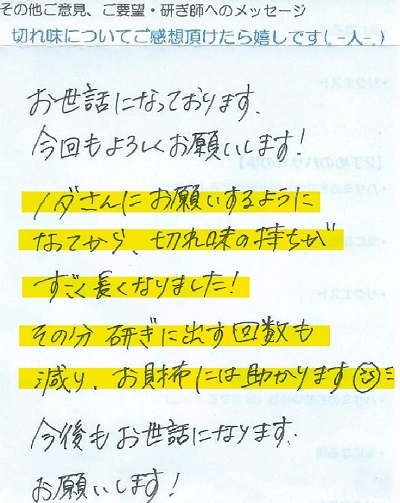 その他ご意見、ご要望・研ぎ師へのメッセージ
切れ味についてご感想頂けたら嬉しです(.-人-.)
お世話になっております。
今回もよろしくお願いします!
ノダさんにお願いするように
なってから、切れ味の持ちが
すごく長くなりました!
その分 研ぎに出す回数も
減り、お財布には助かります
今後もお世話になります、
お願いします!